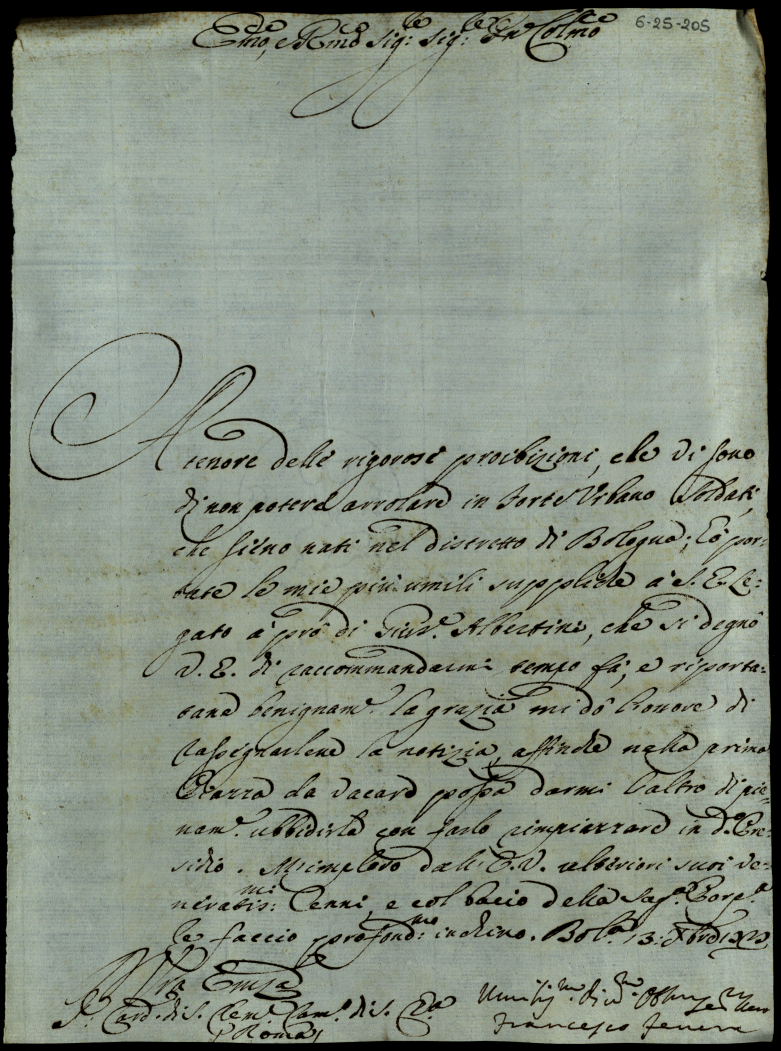 6-25-205
Emo, e Rmo Sig.r Sig.r Pne Colmo
A tenore delle rigorose proibizioni, che vi sono
di non potere arrolare in Forte Urbano Soldati,
che sieno nati nel distretto di Bologna; hò por-
tate le mie più umili suppliche à S. E. Le-
gato à prò di Albertini, che si degnò
V. E. di raccommandarmi tempo fà, e riporta-
tane benignam.e la grazia mi dò l'onore di
rassegnarlene la notizia, affinche nella prima
Piazza da vacare possa darmi l'altro di pie-
nam.e ubbidirla con farlo rimpiazzare in d.o Pre-
sidio. M'imploro dall'E. V. ulteriori suoi ve-
neratis:mi Cenni, e col bacio della Sag.a Porp.a
le faccio profond:mo inchino. Bol.a 13.
Vra Emza
S.r Card. di S. Clem.e Cam.o di S. Ca
Roma
Umilis.mo Div.mo Obbmo Ser.re
Francesco